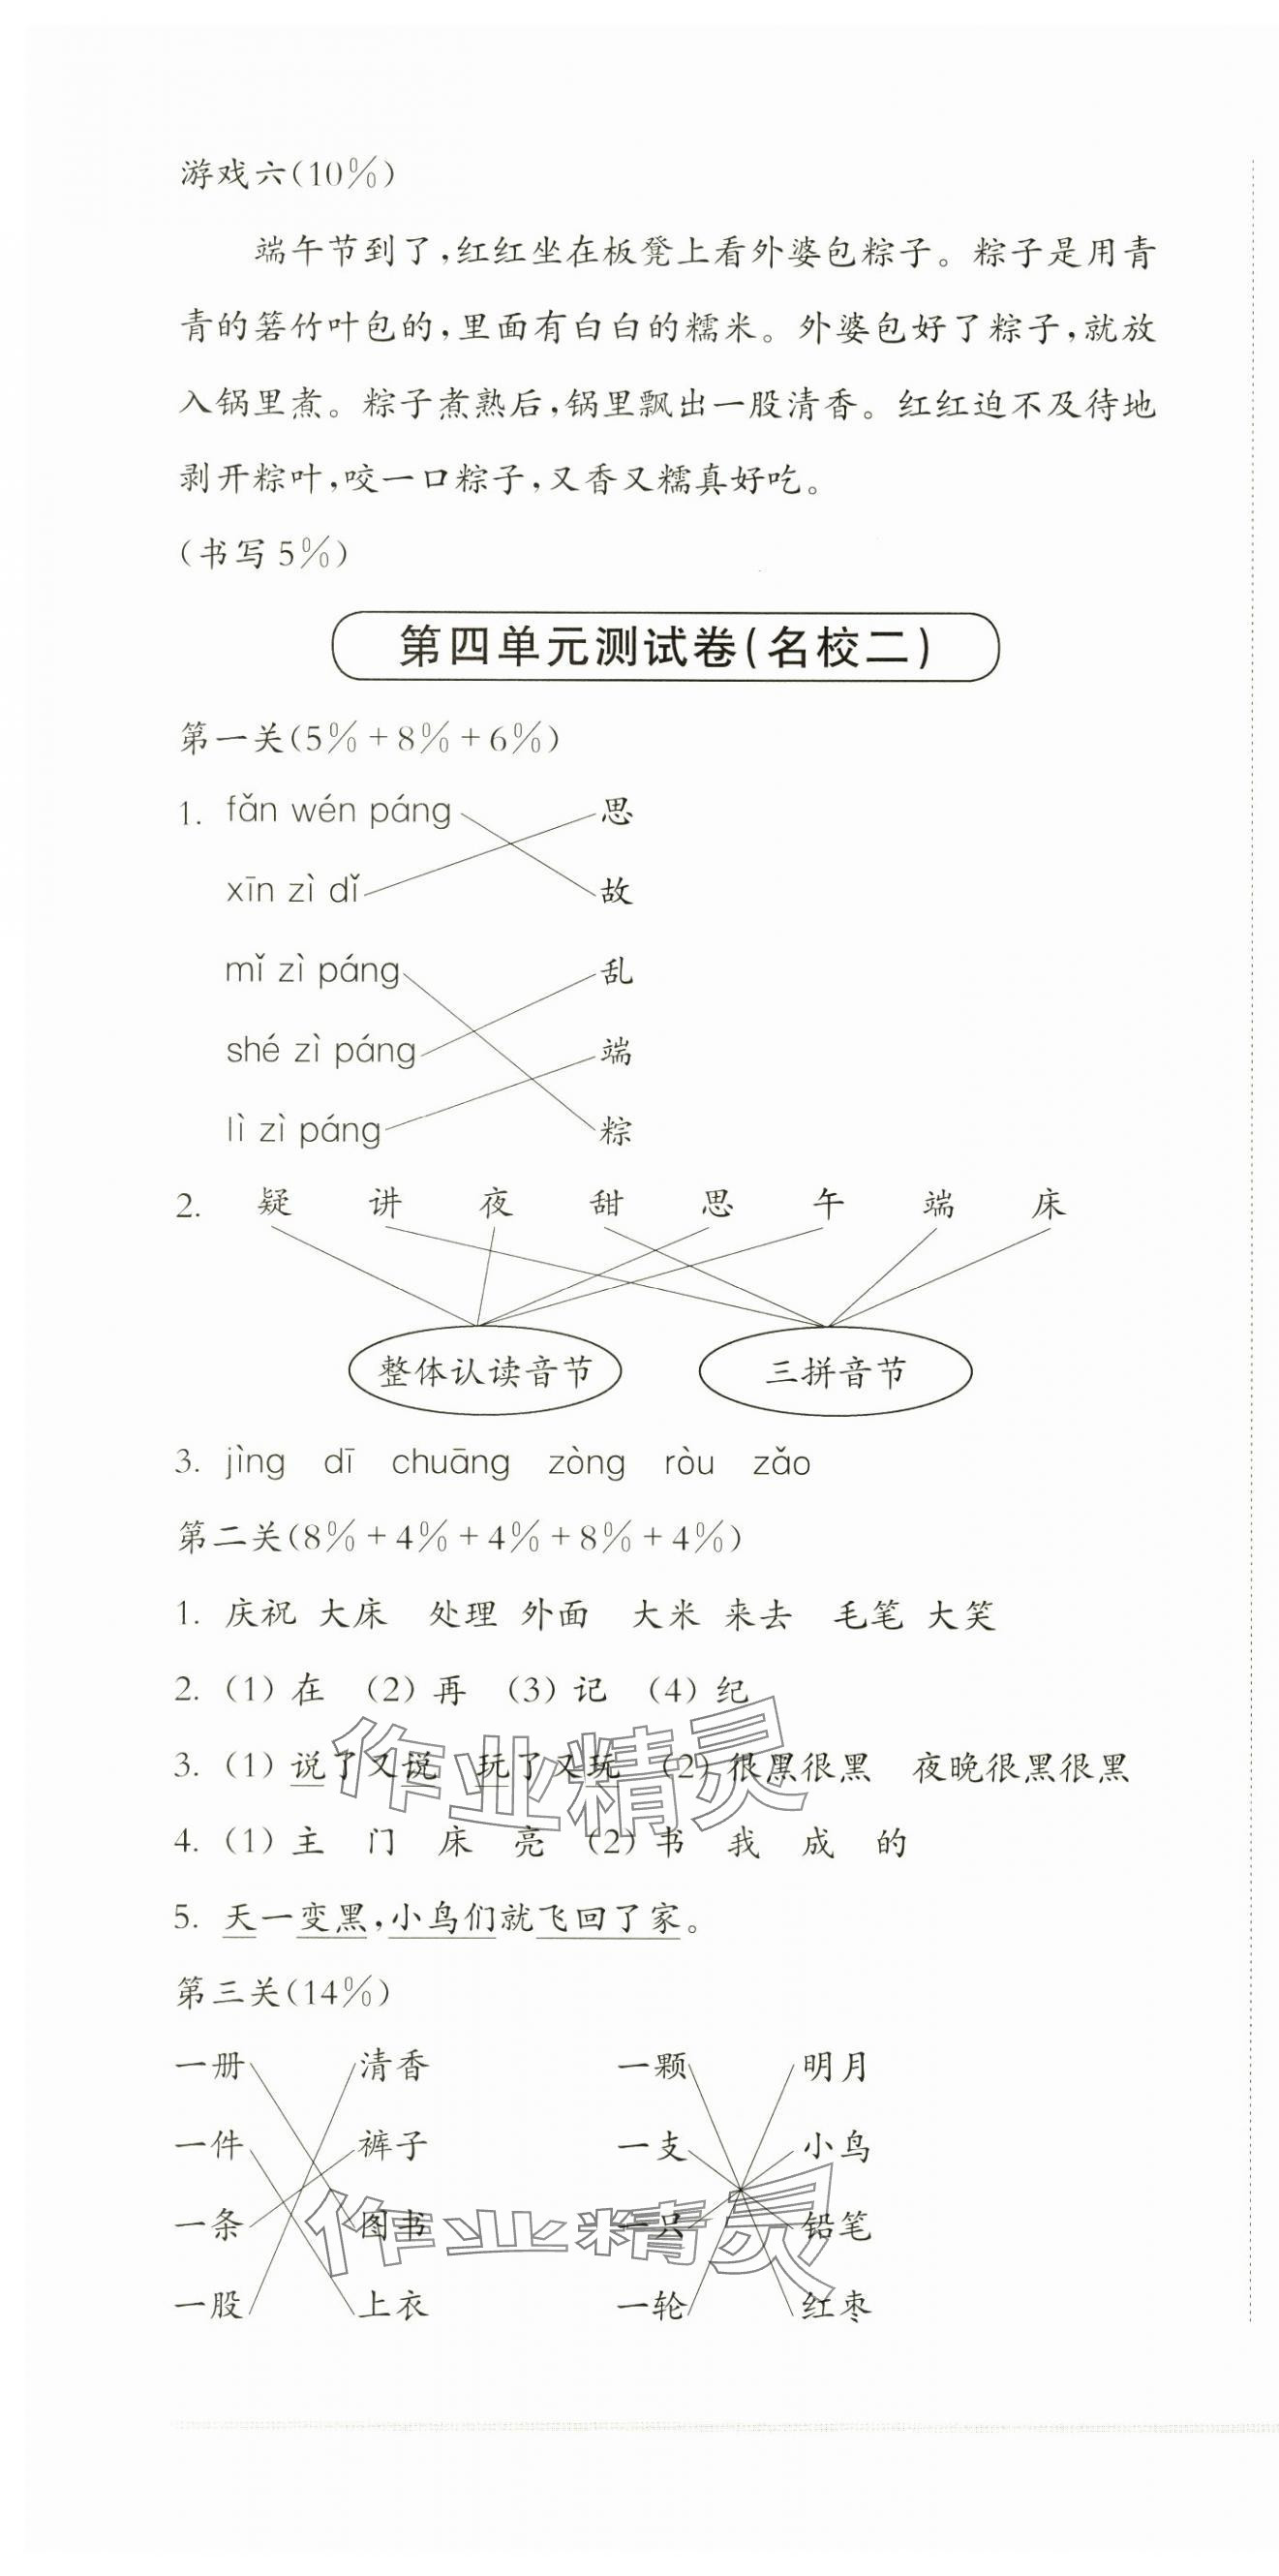 游戏六(10%)
端午节到了,红红坐在板凳上看外婆包粽子。粽子是用青
青的箬竹叶包的,里面有白白的糯米。外婆包好了粽子,就放
入锅里煮。粽子煮熟后,锅里飘出一股清香。红红迫不及待地
剥开粽叶,咬一口粽子,又香又糯真好吃。
(书写5%)
第四单元测试卷(名校二)
第一关(5%+8%+6%)
1. fǎn wén páng 思
xīn zì dǐ 故
mǐ zì páng 乱
shé zì páng 端
lì zì páng 粽
2. 疑 讲 夜 甜 思 午 端 床
整体认读音节 三拼音节
3. jìng dī chuāng zòng ròu zǎo
第二关(8%+4%+4%+8%+4%)
1. 庆祝 大床 处理 外面 大米 来去 毛笔 大笑
2. (1) 在 (2) 再 (3) 记 (4) 纪
3. (1) 说了又说 玩了又玩 (2) 很黑很黑 夜晚很黑很黑
4. (1) 主 门 床 亮 (2) 书 我 成 的
5. 天一变黑,小鸟们就飞回了家。
作业精灵
第三关(14%)
一册 清香 一颗 明月
一件 裤子 一支 小鸟
一条 图书 一只 铅笔
一股 上衣 一轮 红枣
作业精灵